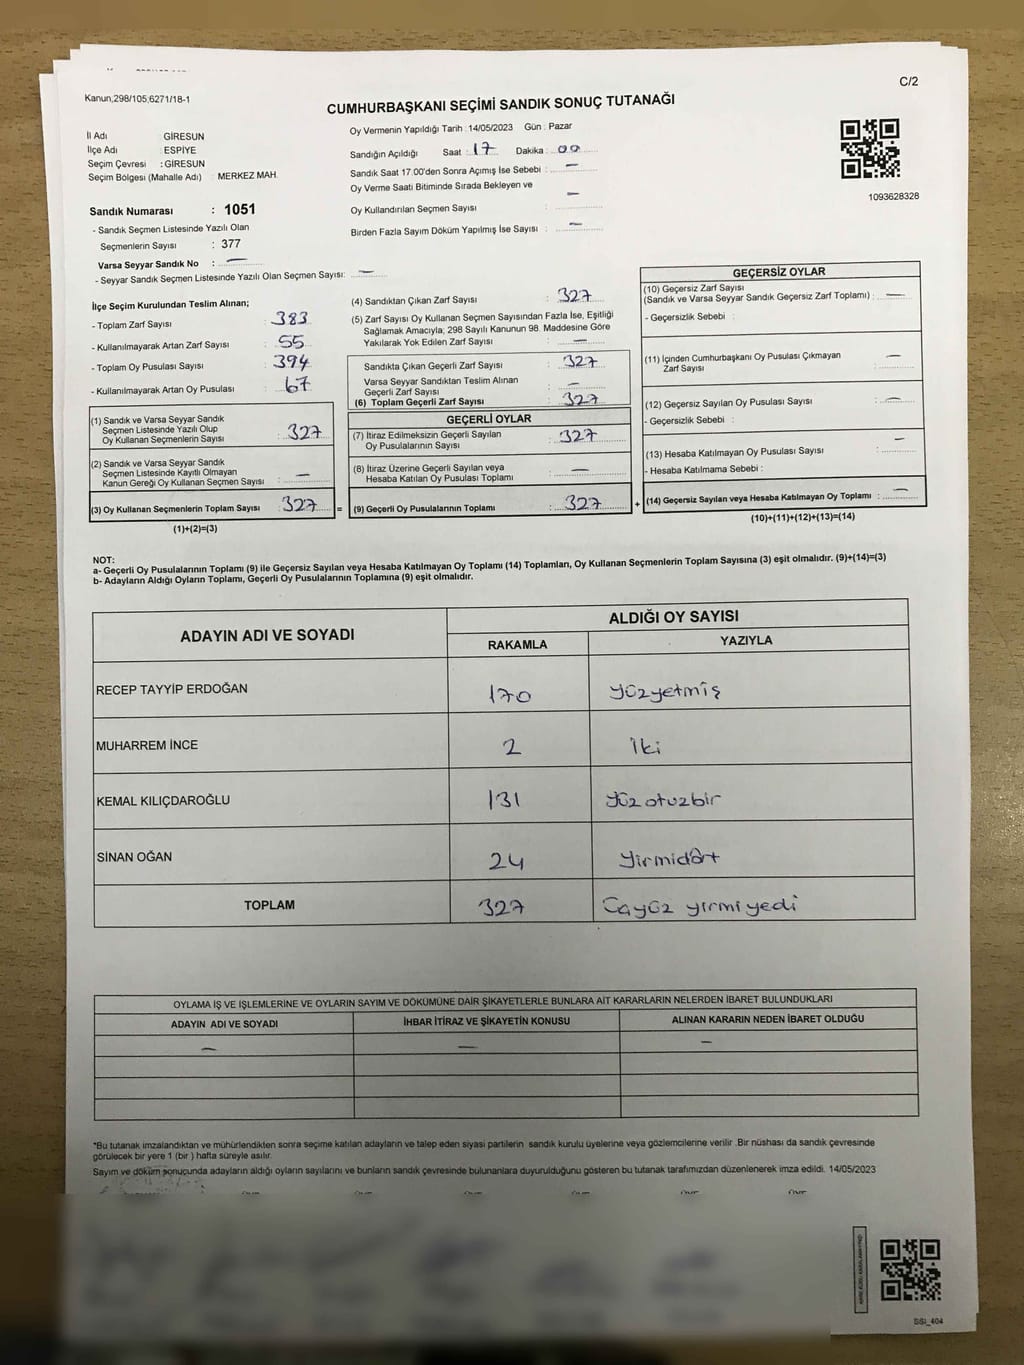 C/2
Kanun,298/105,6271/18-1
CUMHURBAŞKANI SEÇİMİ SANDIK SONUÇ TUTANAĞI
İl Adı GİRESUN
İlçe Adı : ESPİYE
Seçim Çevresi : GİRESUN
Seçim Bölgesi (Mahalle Adı) : MERKEZ MAH.
Sandık Numarası : 1051
- Sandık Seçmen Listesinde Yazılı Olan
Seçmenlerin Sayısı : 377
Varsa Seyyar Sandık No : —
- Seyyar Sandık Seçmen Listesinde Yazılı Olan Seçmen Sayısı: —
Oy Vermenin Yapıldığı Tarih : 14/05/2023 Gün : Pazar
Sandığın Açıldığı Saat : 17 Dakika : 00
Sandık Saat 17.00'den Sonra Açımış İse Sebebi : —
Oy Verme Saati Bitiminde Sırada Bekleyen ve
Oy Kullandırılan Seçmen Sayısı : —
Birden Fazla Sayım Döküm Yapılmış İse Sayısı : —
1093628328
İlçe Seçim Kurulundan Teslim Alınan;
- Toplam Zarf Sayısı : 383
- Kullanılmayarak Artan Zarf Sayısı : 55
- Toplam Oy Pusulası Sayısı : 394
- Kullanılmayarak Artan Oy Pusulası : 67
(1) Sandık ve Varsa Seyyar Sandık
Seçmen Listesinde Yazılı Olup
Oy Kullanan Seçmenlerin Sayısı : 327
(2) Sandık ve Varsa Seyyar Sandık
Seçmen Listesinde Kayıtlı Olmayan
Kanun Gereği Oy Kullanan Seçmen Sayısı : —
(3) Oy Kullanan Seçmenlerin Toplam Sayısı : 327
(1)+(2)=(3)
=
(4) Sandıktan Çıkan Zarf Sayısı : 327
(5) Zarf Sayısı Oy Kullanan Seçmen Sayısından Fazla İse, Eşitliği
Sağlamak Amacıyla; 298 Sayılı Kanunun 98. Maddesine Göre
Yakılarak Yok Edilen Zarf Sayısı : —
Sandıkta Çıkan Geçerli Zarf Sayısı : 327
Varsa Seyyar Sandıktan Teslim Alınan
Geçerli Zarf Sayısı : —
(6) Toplam Geçerli Zarf Sayısı : 327
GEÇERLİ OYLAR
(7) İtiraz Edilmeksizin Geçerli Sayılan
Oy Pusulalarının Sayısı : 327
(8) İtiraz Üzerine Geçerli Sayılan veya
Hesaba Katılan Oy Pusulası Toplamı : —
(9) Geçerli Oy Pusulalarının Toplamı : 327
+
GEÇERSİZ OYLAR
(10) Geçersiz Zarf Sayısı
(Sandık ve Varsa Seyyar Sandık Geçersiz Zarf Toplamı) : —
- Geçersizlik Sebebi :
(11) İçinden Cumhurbaşkanı Oy Pusulası Çıkmayan
Zarf Sayısı : —
(12) Geçersiz Sayılan Oy Pusulası Sayısı : —
- Geçersizlik Sebebi :
(13) Hesaba Katılmayan Oy Pusulası Sayısı : —
- Hesaba Katılmama Sebebi :
(14) Geçersiz Sayılan veya Hesaba Katılmayan Oy Toplamı : —
(10)+(11)+(12)+(13)=(14)
NOT:
a- Geçerli Oy Pusulalarının Toplamı (9) ile Geçersiz Sayılan veya Hesaba Katılmayan Oy Toplamı (14) Toplamları, Oy Kullanan Seçmenlerin Toplam Sayısına (3) eşit olmalıdır. (9)+(14)=(3)
b- Adayların Aldığı Oyların Toplamı, Geçerli Oy Pusulalarının Toplamına (9) eşit olmalıdır.
ADAYIN ADI VE SOYADI ALDIĞI OY SAYISI
RAKAMLA YAZIYLA
RECEP TAYYİP ERDOĞAN 170 yüzyetmiş
MUHARREM İNCE 2 iki
KEMAL KILIÇDAROĞLU 131 yüzotuzbir
SİNAN OĞAN 24 yirmidört
TOPLAM 327 üçyüz yirmi yedi
OYLAMA İŞ VE İŞLEMLERİNE VE OYLARIN SAYIM VE DÖKÜMÜNE DAİR ŞİKAYETLERLE BUNLARA AİT KARARLARIN NELERDEN İBARET BULUNDUKLARI
ADAYIN ADI VE SOYADI İHBAR İTİRAZ VE ŞİKAYETİN KONUSU ALINAN KARARIN NEDEN İBARET OLDUĞU
— — —
*Bu tutanak imzalandıktan ve mühürlendikten sonra seçime katılan adayların ve talep eden siyasi partilerin sandık kurulu üyelerine veya gözlemcilerine verilir .Bir nüshası da sandık çevresinde
görülecek bir yere 1 (bir ) hafta süreyle asılır.
Sayım ve döküm sonucunda adayların aldığı oyların sayılarını ve bunların sandık çevresinde bulunanlara duyurulduğunu gösteren bu tutanak tarafımızdan düzenlenerek imza edildi. 14/05/2023
SSI_404